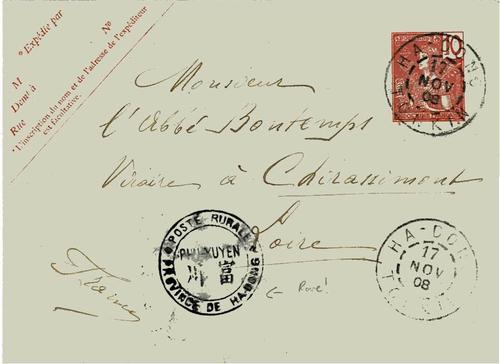 * Expédié par
N°
M
Demt à
Rue
* L'inscription du nom et de l'adresse de l'expéditeur
est facultative.
10
HA-DONG
17
NOV
08
TONKIN
Monsieur
l'abbé Bontemps
Vicaire à Chirassimont
Loire
France
POSTE RURALE
PHU XUYEN
富川
PROVINCE DE HA-DONG
← Rare!
HA-DONG
17
NOV
08
TONKIN